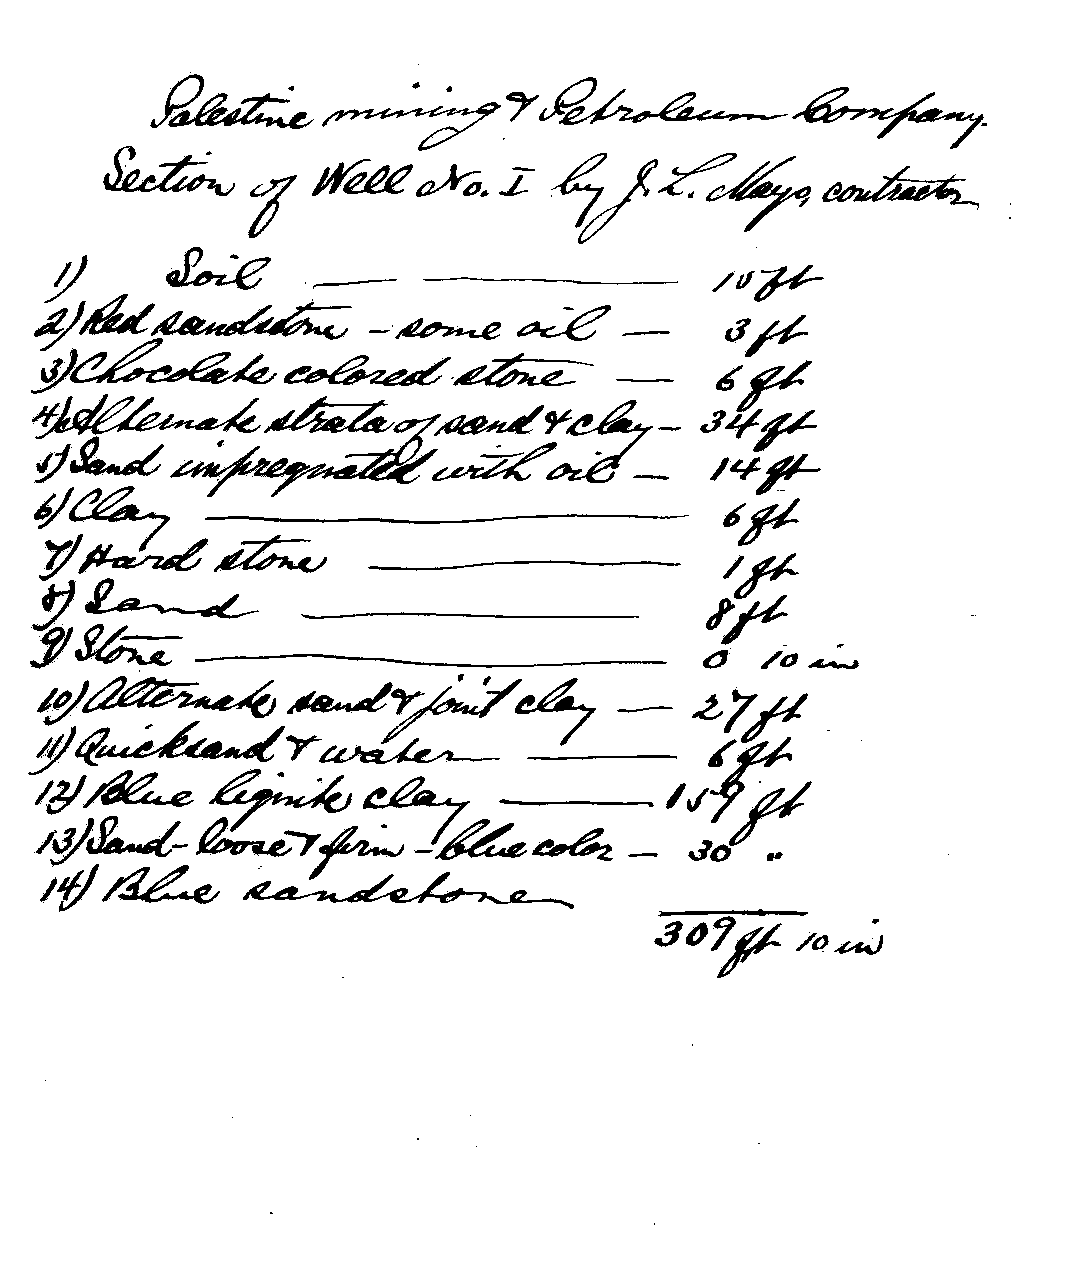 Palestine mining & Petroleum Company.
Section of Well No. I by J. L. Mayo, contractor
1) Soil — — 15 ft
2) Red sandstone - some oil — 3 ft
3) Chocolate colored stone — 6 ft
4) Alternate strata of sand & clay - 34 ft
5) Sand impregnated with oil — 14 ft
6) Clay — 6 ft
7) Hard stone — 1 ft
8) Sand — 8 ft
9) Stone — 0 10 in
10) Alternate sand & joint clay — 27 ft
11) Quicksand & water — 6 ft
12) Blue lignite clay — 159 ft
13) Sand - loose & firm - blue color - 30 "
14) Blue sandstone
309 ft 10 in